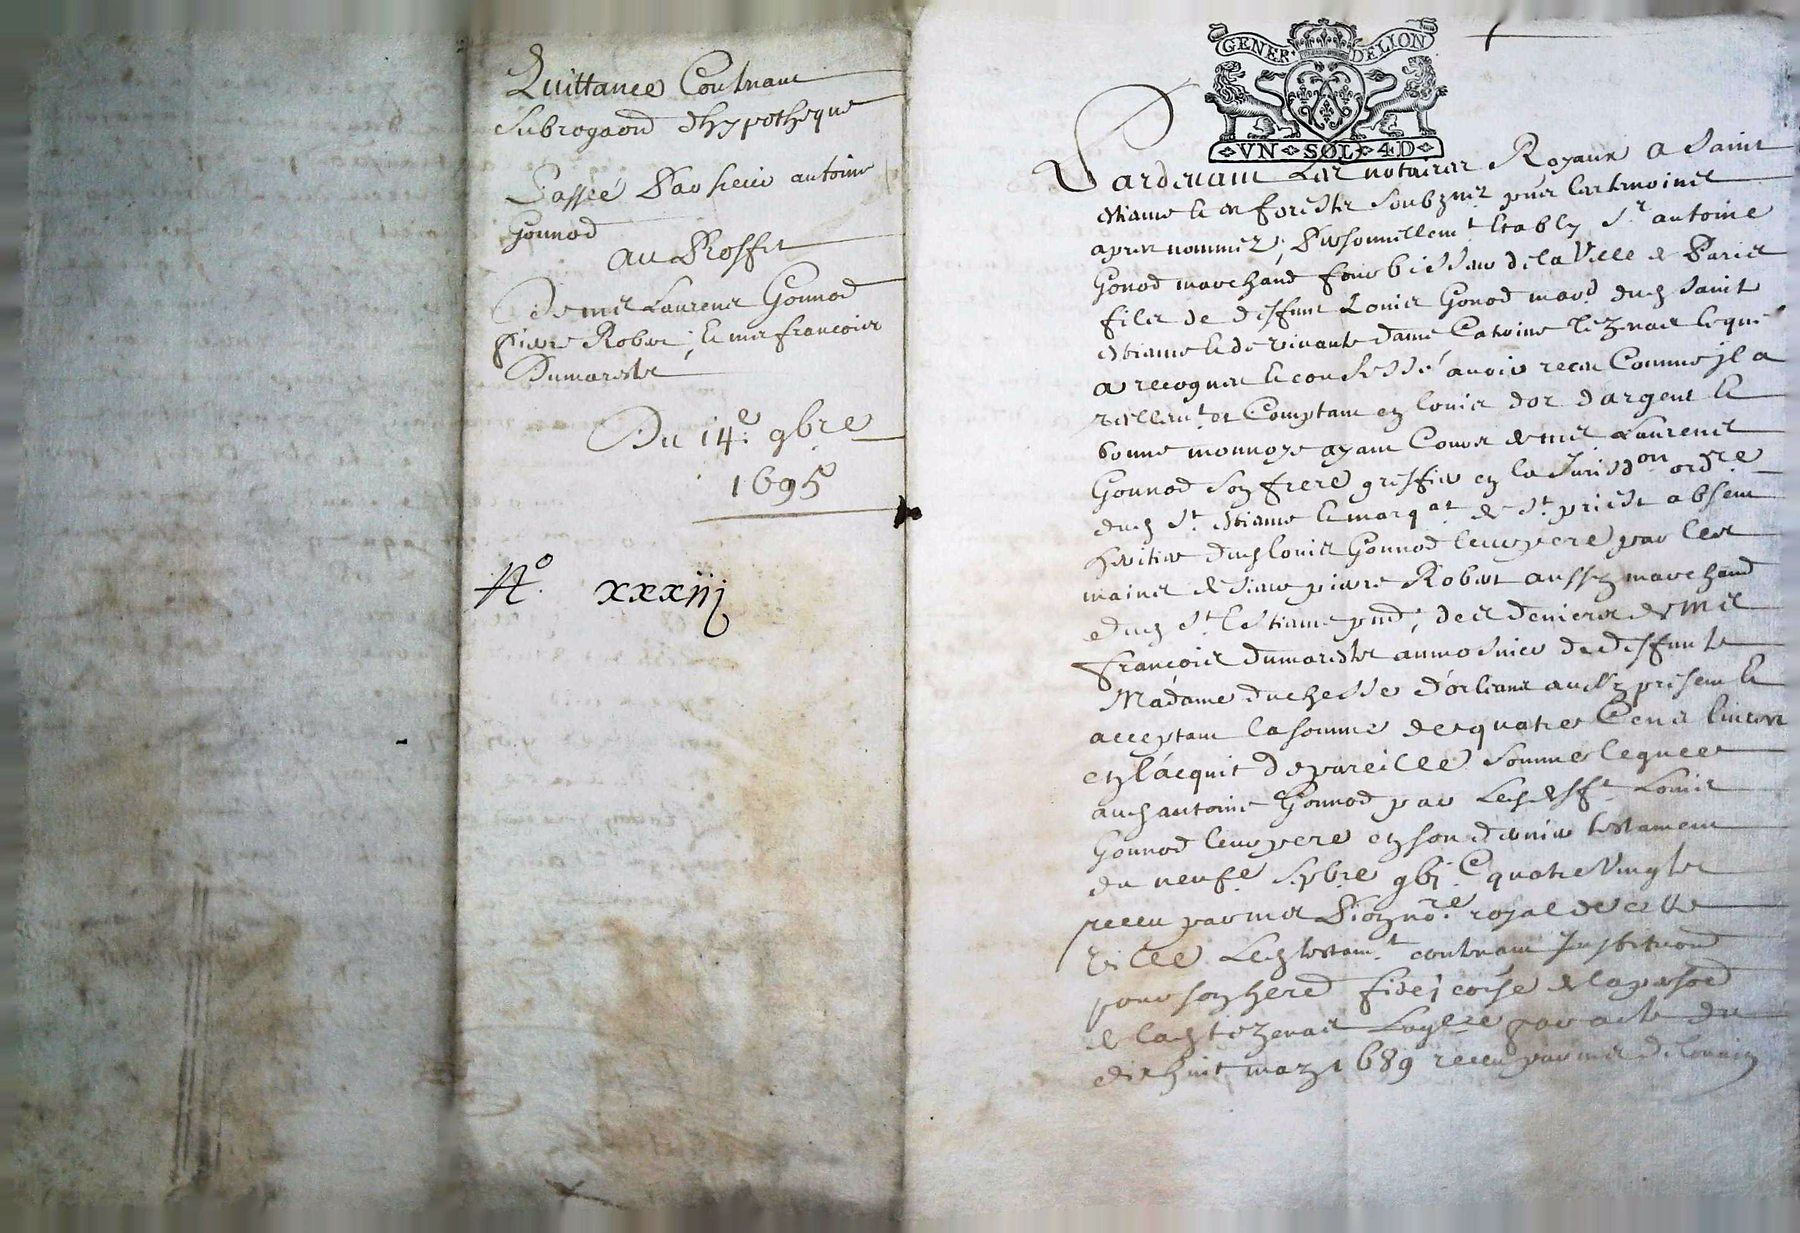 Quittance Contenant
Subrogaõn d'hypotheque
Passée Par sieur antoine
Gonnod
au Proffit
De mes Laurens Gonnod
pierre Robert, & mre françois
Dumareste
Du 14.e 9bre
1695
N.o xxxiij
GENER DELION
VN SOL 4D
Pardevant Les notaires Royaux a Saint
estienne en forestz Soubznez pntz Les tesmoins
apres nommez, Personnellemt Estably Sr antoine
Gonod marchand fourbisseur de la Ville de Paris
filz de deffunt Louis Gonod march dud Saint
estienne & de vivante dame Catrine Tezenas lequel
a recognu & confessé avoir receu Comme jl a
reellemt et Comptant en louis d'or d'argent &
bonne monnoye ayant Cours de me Laurens
Gonnod son frere greffier en la Jurisdon ordre
dud St estienne & marqat de St priest absent
heritier dud louis Gonnod leur pere par les
mains de sieur pierre Robert aussy marchand
dud St Estienne pnt, des deniers de Mre
françois dumareste aumosnier de deffunte
Madame duchesse d'orleans aussy present &
acceptant la somme de quatre Cens livres
en l'acquit de pareille somme leguée
aud antoine Gonnod par led defft Louis
Gonnod leur pere en son dernier testament
du neufe 7bre 9bj C quatre Vingts
receu par me nore royal de cette
Ville Led testamt contenant Institutiond
pour son hered de la persoe
de lad Tezenas par acte du
dix huit may 1689 receu par me